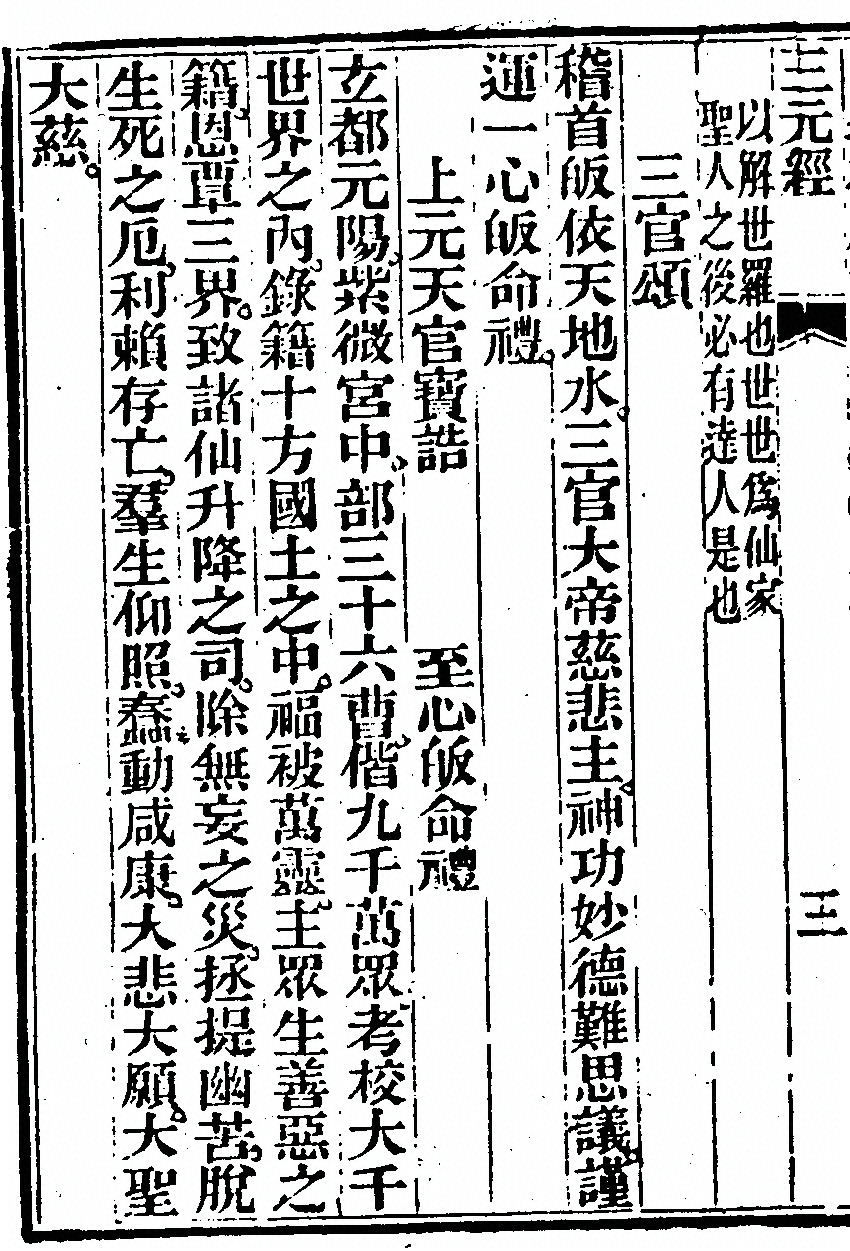 三元經
三
以解世羅也世世爲仙家
聖人之後必有達人是也
三官頌
稽首皈依天地水。三官大帝慈悲主。神功妙德難思議。謹
運一心皈命禮。
上元天官寶誥　至心皈命禮
玄都元陽。紫微宮中。部三十六曹。偕九千萬眾。考校大千
世界之內。錄籍十方國土之中。福被萬靈。主眾生善惡之
籍。恩覃三界。致諸仙升降之司。除無妄之災。拯提幽苦。脫
生死之厄。利賴存亡。羣生仰照。蠢動咸康。大悲大願。大聖
大慈。